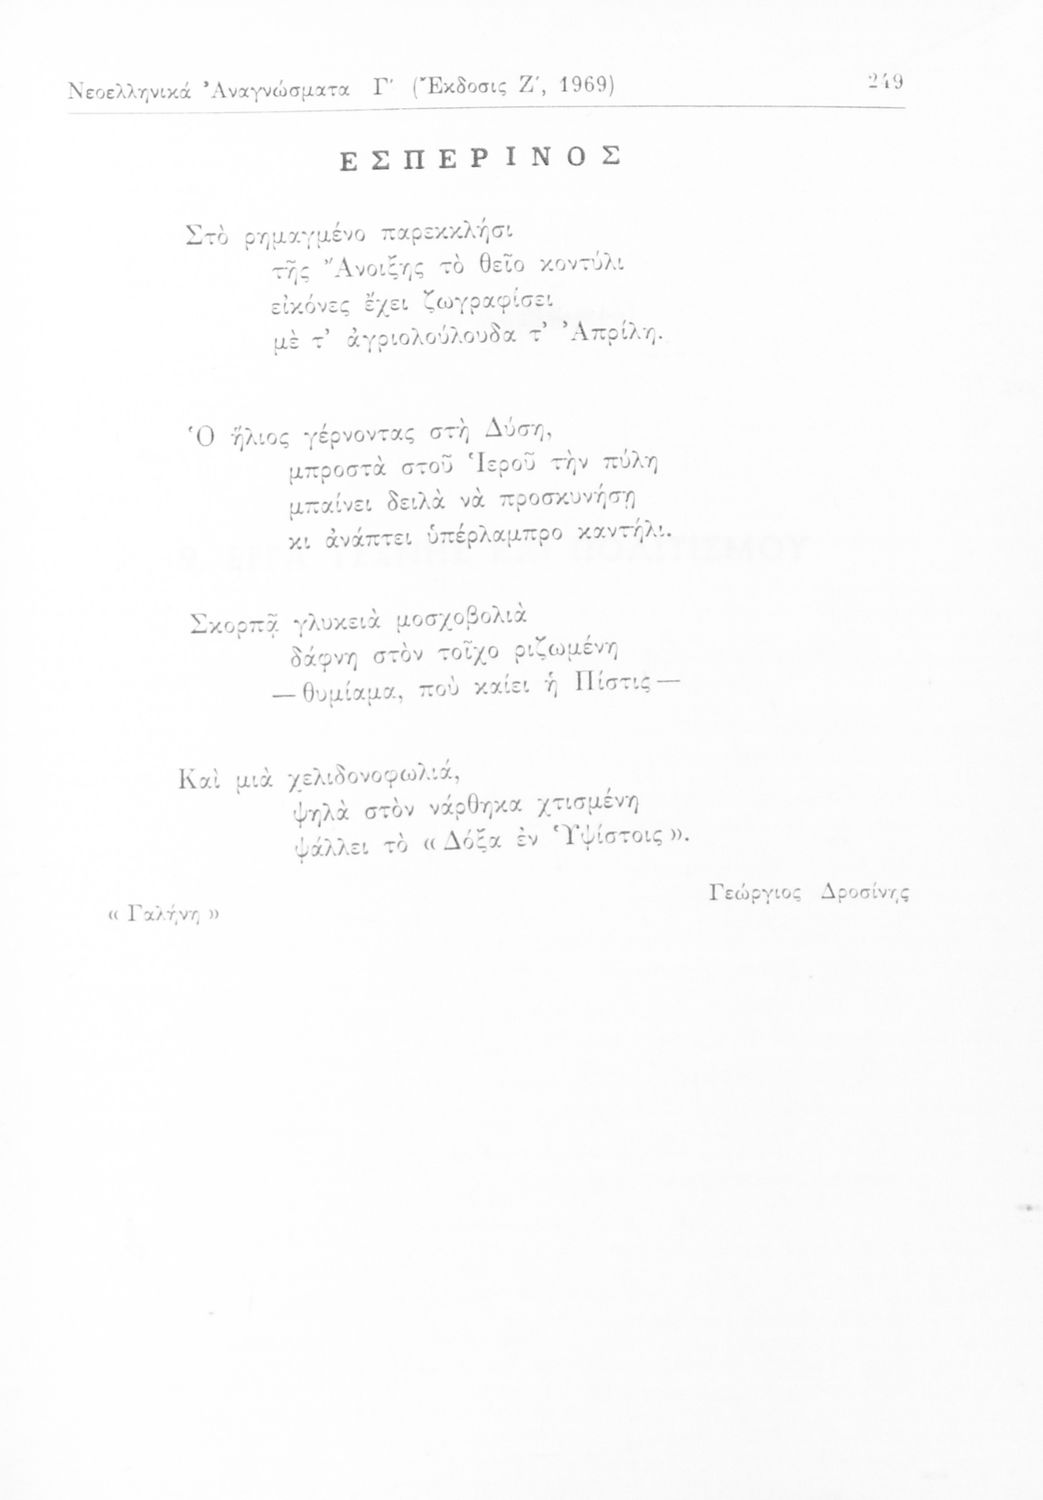 Νεοελληνικά Ἀναγνώσματα Γ΄ (Ἔκδοσις Ζ΄, 1969)
249
ΕΣΠΕΡΙΝΟΣ
Στὸ ρημαγμένο παρεκκλήσι
τῆς Ἄνοιξης τὸ θεῖο κοντύλι
εἰκόνες ἔχει ζωγραφίσει
μὲ τ’ ἀγριολούλουδα τ’ Ἀπρίλη.
Ὁ ἥλιος γέρνοντας στὴ Δύση,
μπροστὰ στοῦ Ἱεροῦ τὴν πύλη
μπαίνει δειλὰ νὰ προσκυνήσῃ
κι ἀνάπτει ὑπέρλαμπρο καντήλι.
Σκορπᾷ γλυκειὰ μοσχοβολιὰ
δάφνη στὸν τοῖχο ριζωμένη
— θυμίαμα, ποὺ καίει ἡ Πίστις —
Καὶ μιὰ χελιδονοφωλιά,
ψηλὰ στὸν νάρθηκα χτισμένη
ψάλλει τὸ « Δόξα ἐν Ὑψίστοις ».
Γεώργιος Δροσίνης
« Γαλήνη »